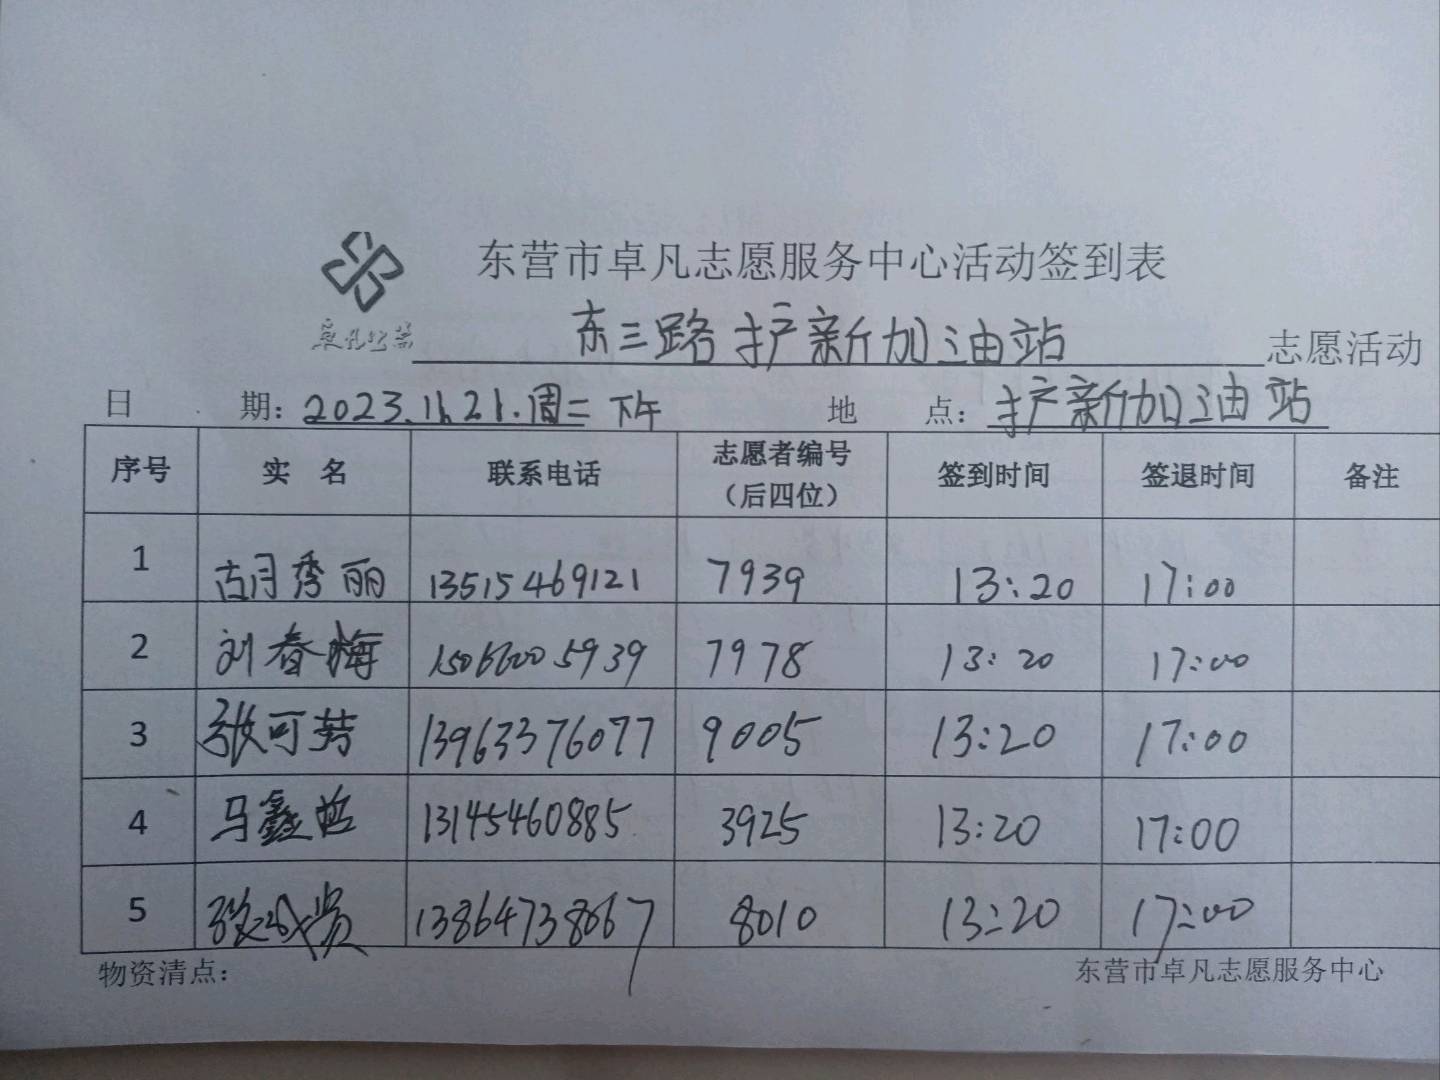 东营市卓凡志愿服务中心活动签到表
卓凡公益
东三路护新加油站 志愿活动
日 期：2023.11.21.周二下午 地 点：护新加油站
序号 实 名 联系电话 志愿者编号（后四位） 签到时间 签退时间 备注
1 胡秀丽 13515469121 7939 13:20 17:00
2 刘春梅 15066005939 7978 13:20 17:00
3 张可芳 13963376077 9005 13:20 17:00
4 马鑫 13145460885 3925 13:20 17:00
5 张 13864738067 8010 13:20 17:00
物资清点： 东营市卓凡志愿服务中心